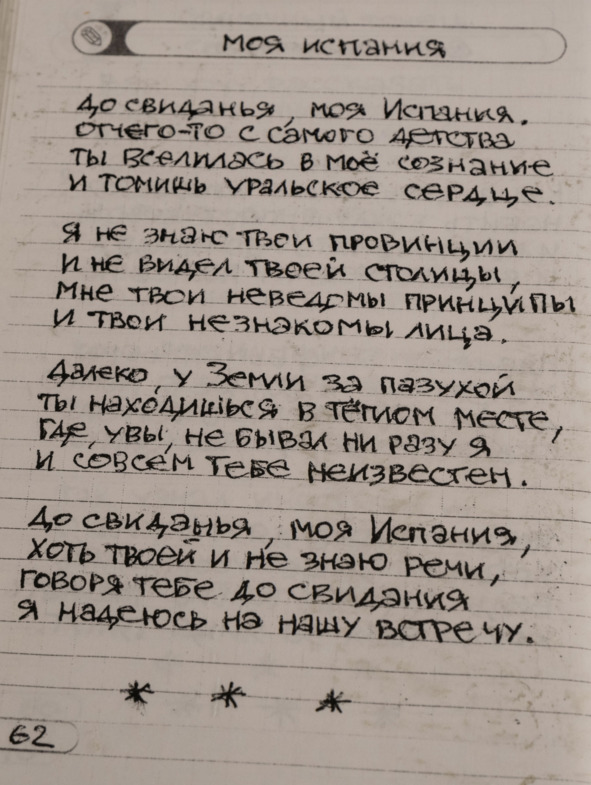 моя испания
До свиданья, моя Испания.
Отчего-то с самого детства
ты вселилась в моё сознание
и томишь уральское сердце.
Я не знаю твои провинции
и не видел твоей столицы,
мне твои неведомы принципы
и твои незнакомы лица.
Далеко, у Земли за пазухой
ты находишься в тёплом месте,
где, увы, не бывал ни разу я
и совсем тебе неизвестен.
До свиданья, моя Испания,
хоть твоей и не знаю речи,
говоря тебе до свидания
я надеюсь на нашу встречу.
* * *
62